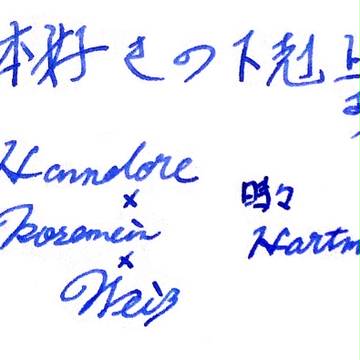 本好きの下剋上
Hannelore
×
Rozemein
×
Weiß
時々
Hartm